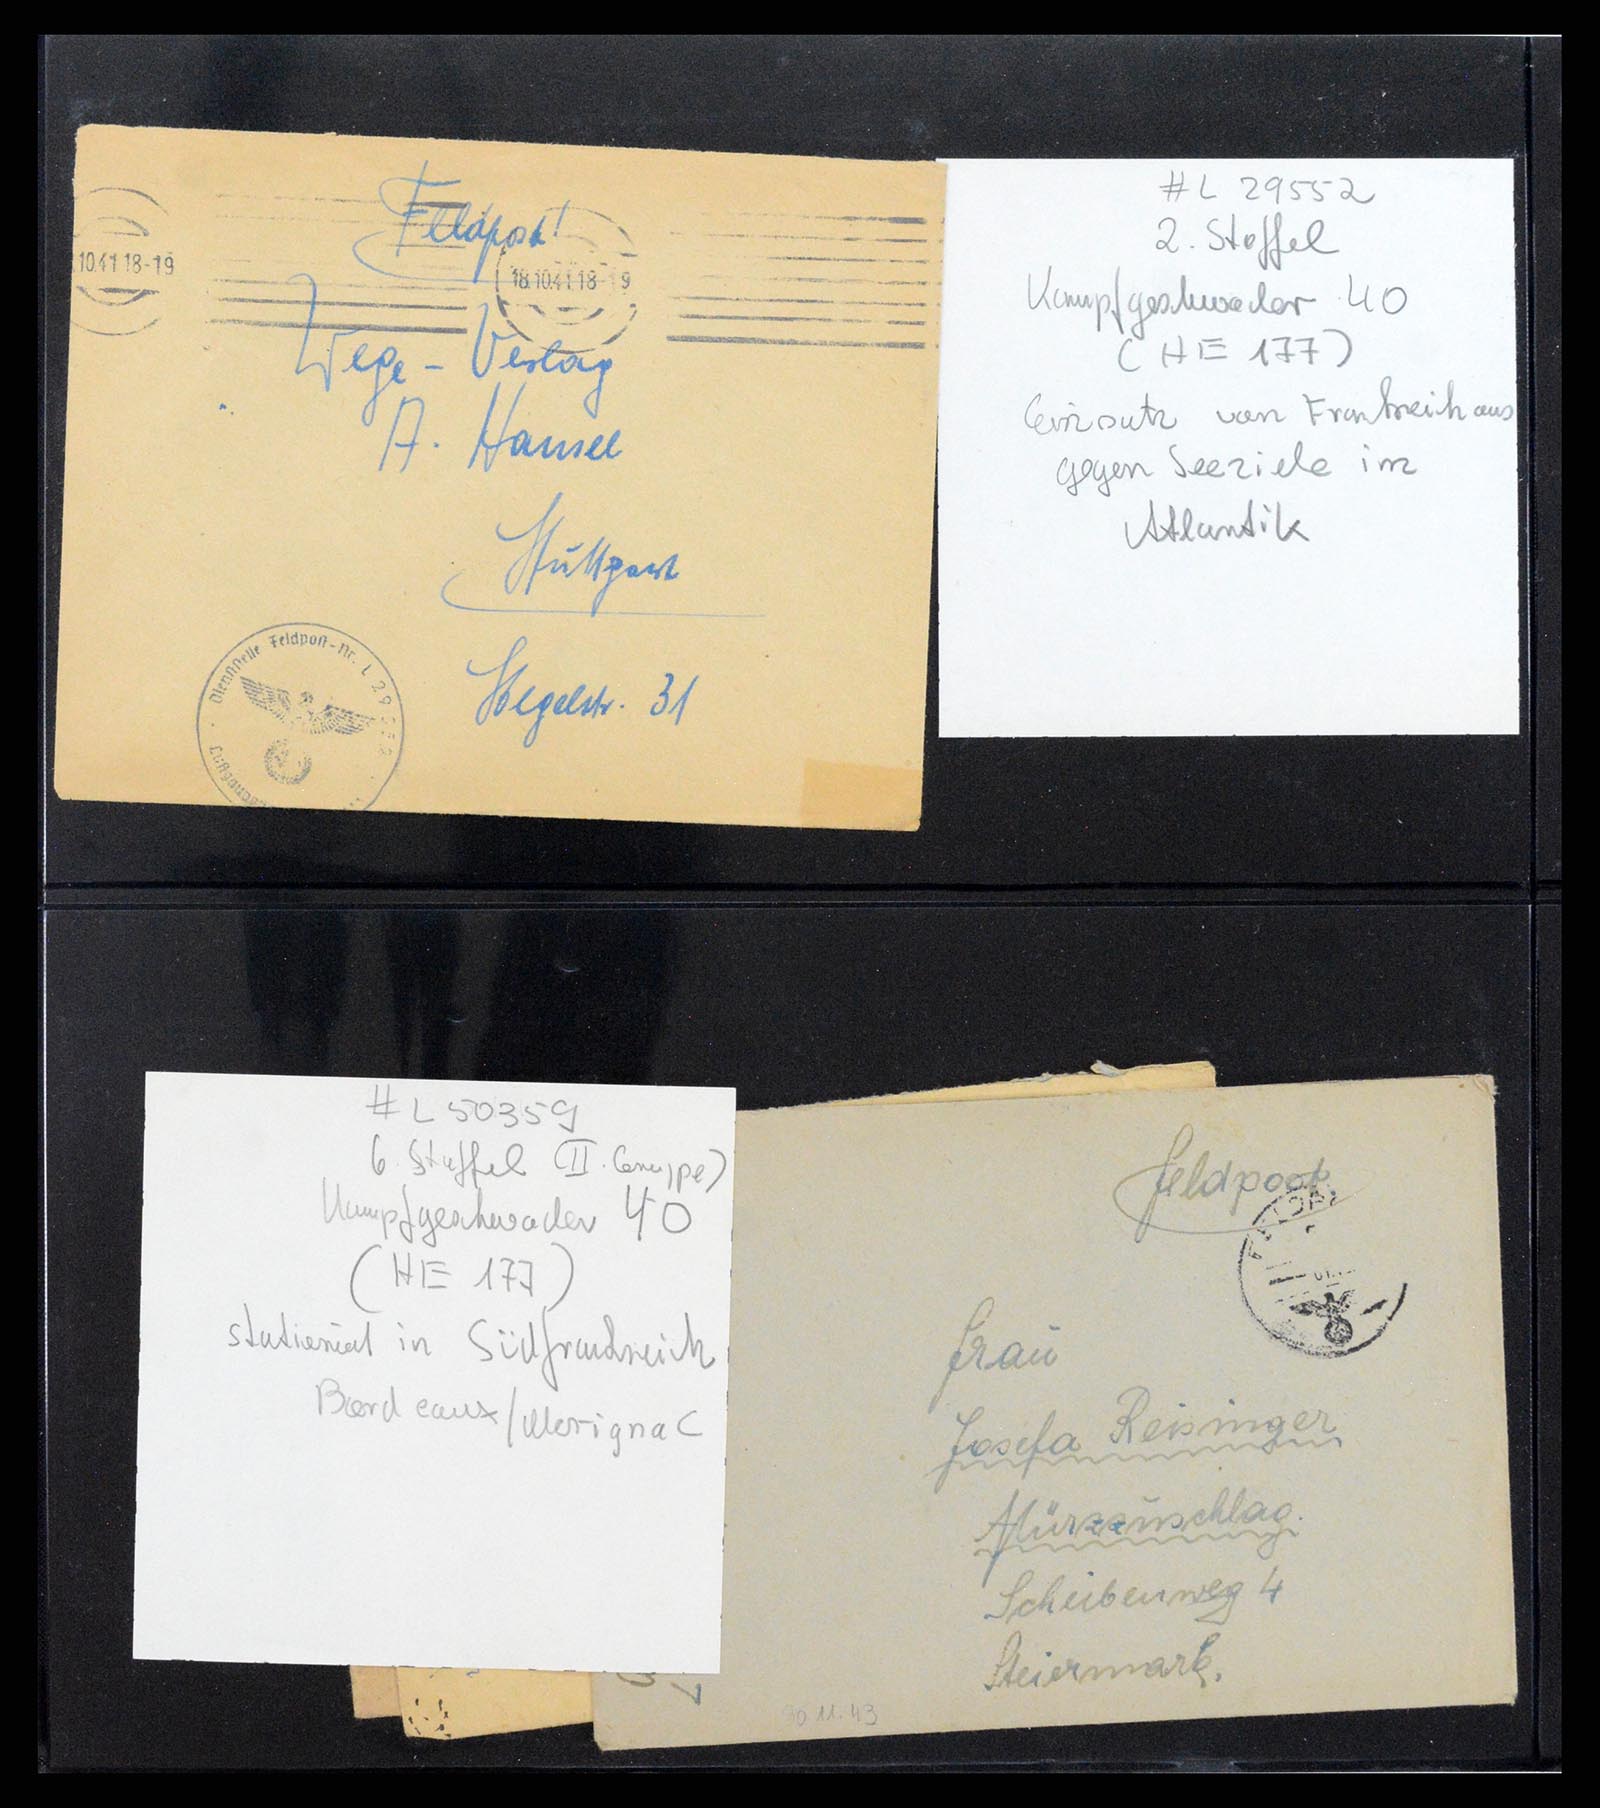 Feldpost!
10.41 18-19
18.10.41 18-19
Wege-Verlag
A. Hansel
Stuttgart
Hegelstr. 31
Dienststelle Feldpost-Nr. L 29552
# L 29552
2. Staffel
Kampfgeschwader 40
(HE 177)
Einsatz von Frankreich aus
gegen Seeziele im
Atlantik
# L 50359
6. Staffel (II. Gruppe)
Kampfgeschwader 40
(HE 177)
stationiert in Südfrankreich
Bordeaux/Merignac
Feldpost.
Frau
Josefa Reisinger
Mürzzuschlag.
Scheibenweg 4
Steiermark.
30 11.43